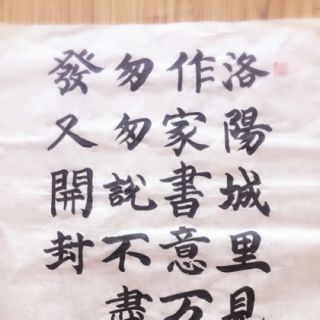 洛陽城里見
作家書意万
匆匆說不盡
發又開封